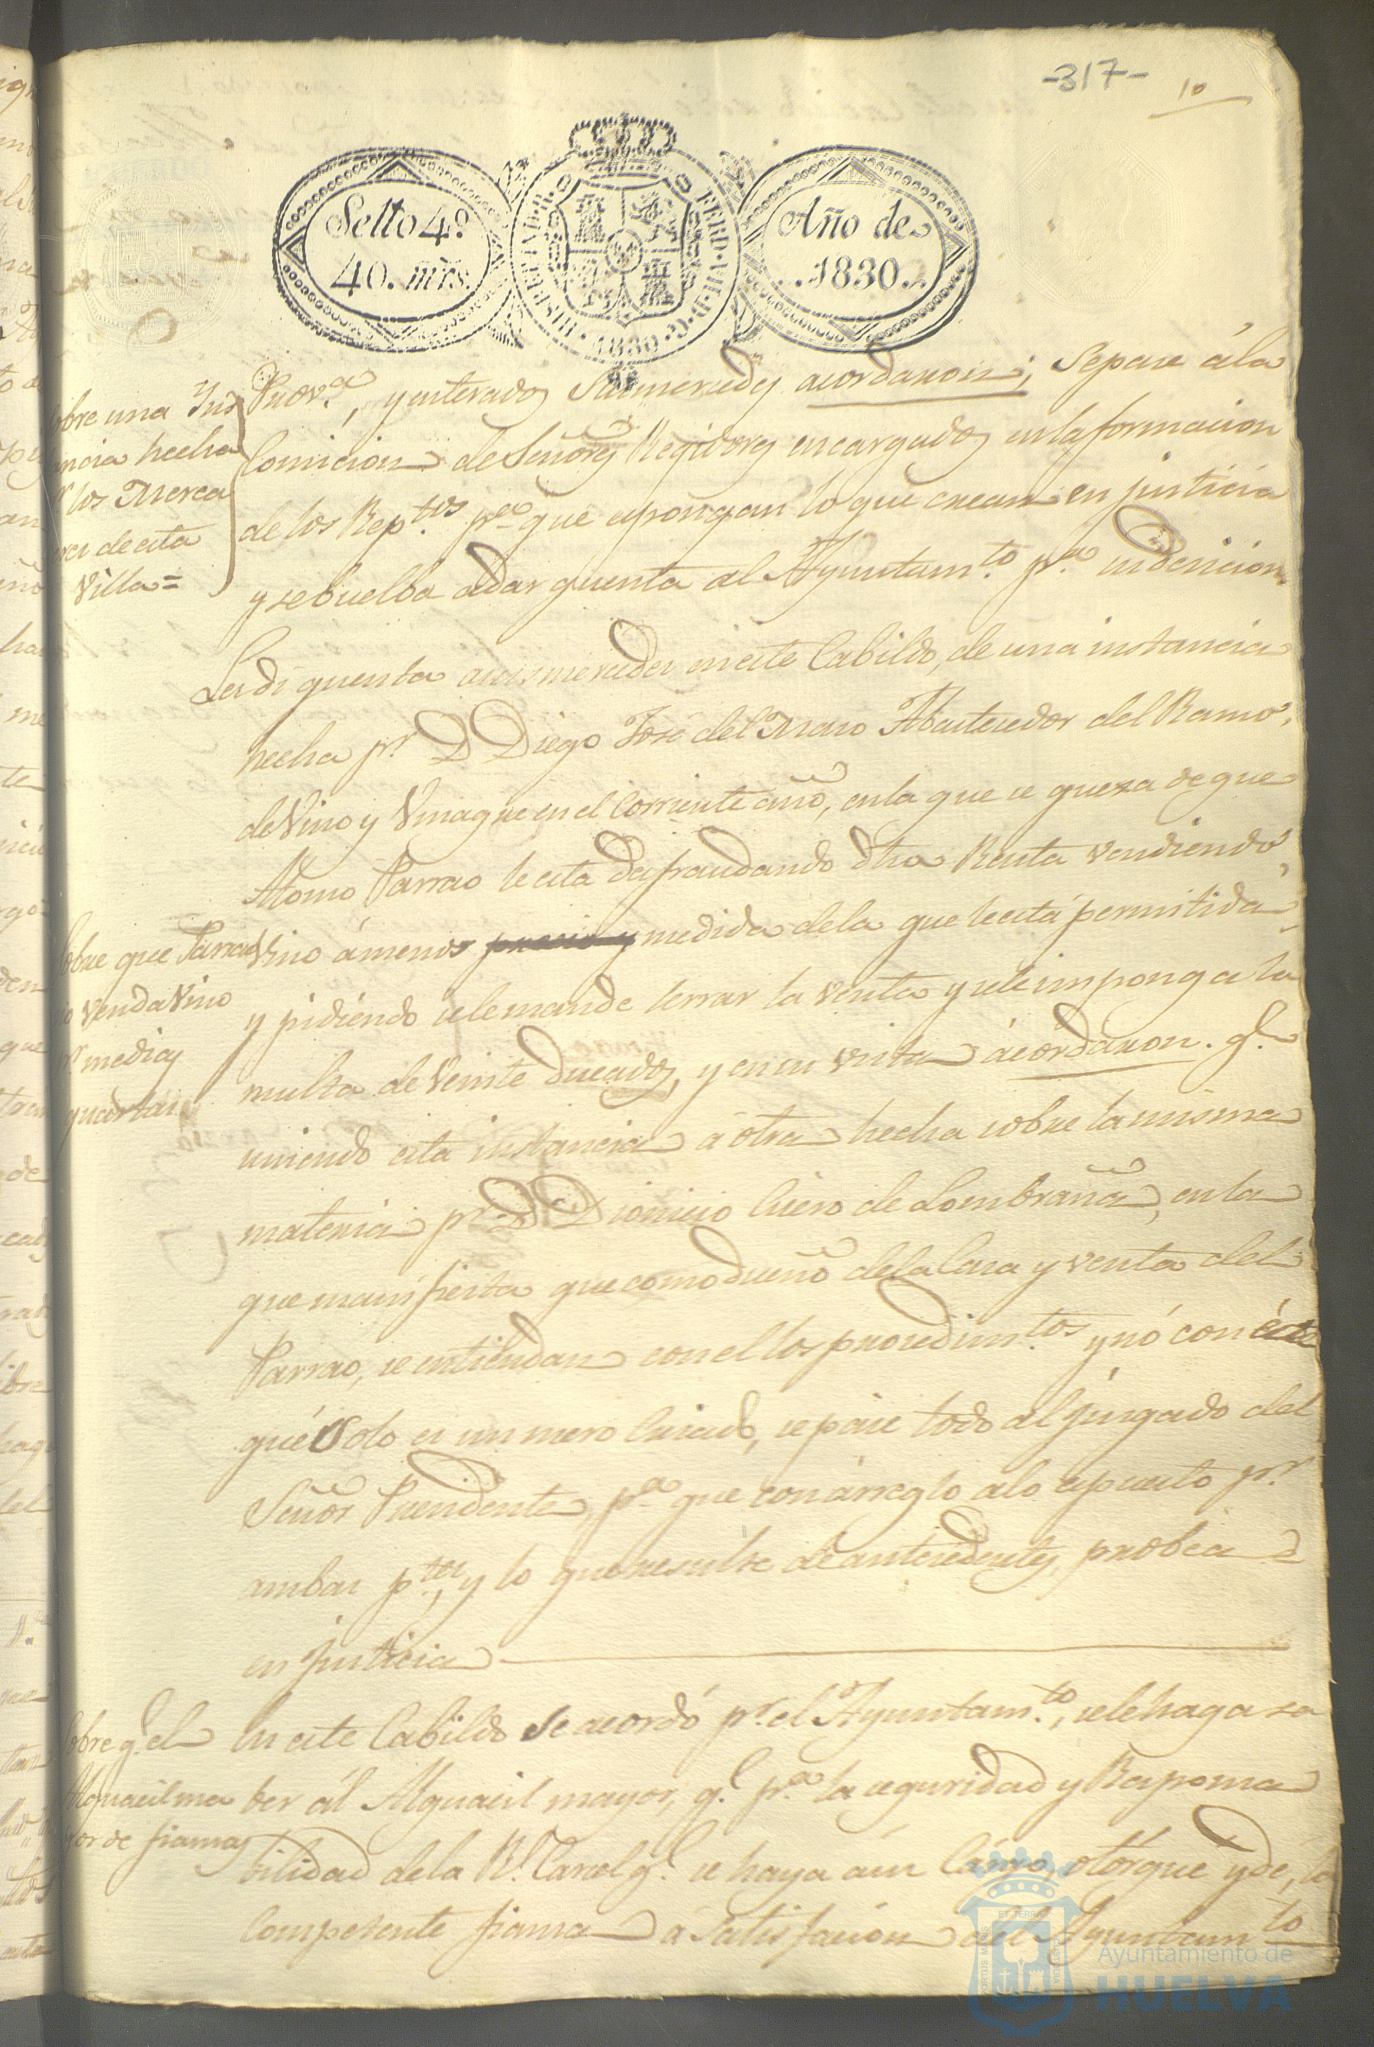 -317-
10
Sello 4º.
40. mrs.
HISP. ET IND. R.
FERD. VII. D. G.
1830
Año de
1830.
obre una Ins
ancia hecha
pr los Merca
eres de esta
Villa=
Prova, y enterados Sus mercedes acordaron; Se pase á la
Comicion de Señores Regidores encargados en la formacion
de los Reptos. pa. que espongan lo que crean en justicia
y se buelba a dar quenta al Ayuntamto. pa. su decicion
Les di quenta a sus mercedes en este Cabildo, de una instancia
hecha pr. D Diego José del Maro Abastecedor del Ramo
de Vino y Vinagre en el Corriente año, en la que se quexa de que
Alonso Parrao le esta defraudando dha Renta vendiendo
obre que Parrao
no venda Vino
pr medias
y cuartas
Vino á menos precio y medida de la que le está permitida
y pidiendo se le mande serrar la venta y se le imponga la
multa de Veinte ducados, y en su vista ácordaron. q.
uniendo esta instancia á otra hecha sobre la misma
materia pr. D Dionicio Cuero de Lombraña, en la
que manifiesta que como dueño de la Casa y venta del
Parrao, se entiendan con el los procedimtos. y nó con éste
qué Solo es un mero Criado, se pase todo al juzgado del
Señor Precidente, pa. que con árreglo a lo espuesto pr.
ambas ptes, y lo que resulte de antecedentes, probea
en justicia
obre q. el
Alguacil ma
or de fianzas
En este Cabildo Se acordó pr. el Ayuntamto., se le haga sa
ber ál Alguacil mayor, q. pa. la seguridad y Responsa
bilidad de la Rl. Carcel q. se haya á su Cargo, otorgue y dé, la
competente fianza á satisfación del Ayuntamto
Ayuntamiento de
HUELVA